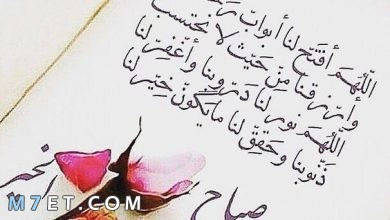 اللهم أفتح لنا أبواب رحمتك
وأرزقنا من حيث لا نحتسب
اللهم نور لنا دروبنا وأغفر لنا
ذنوبنا وحقق لنا مايكون خير لنا
صباح
M7ET.COM